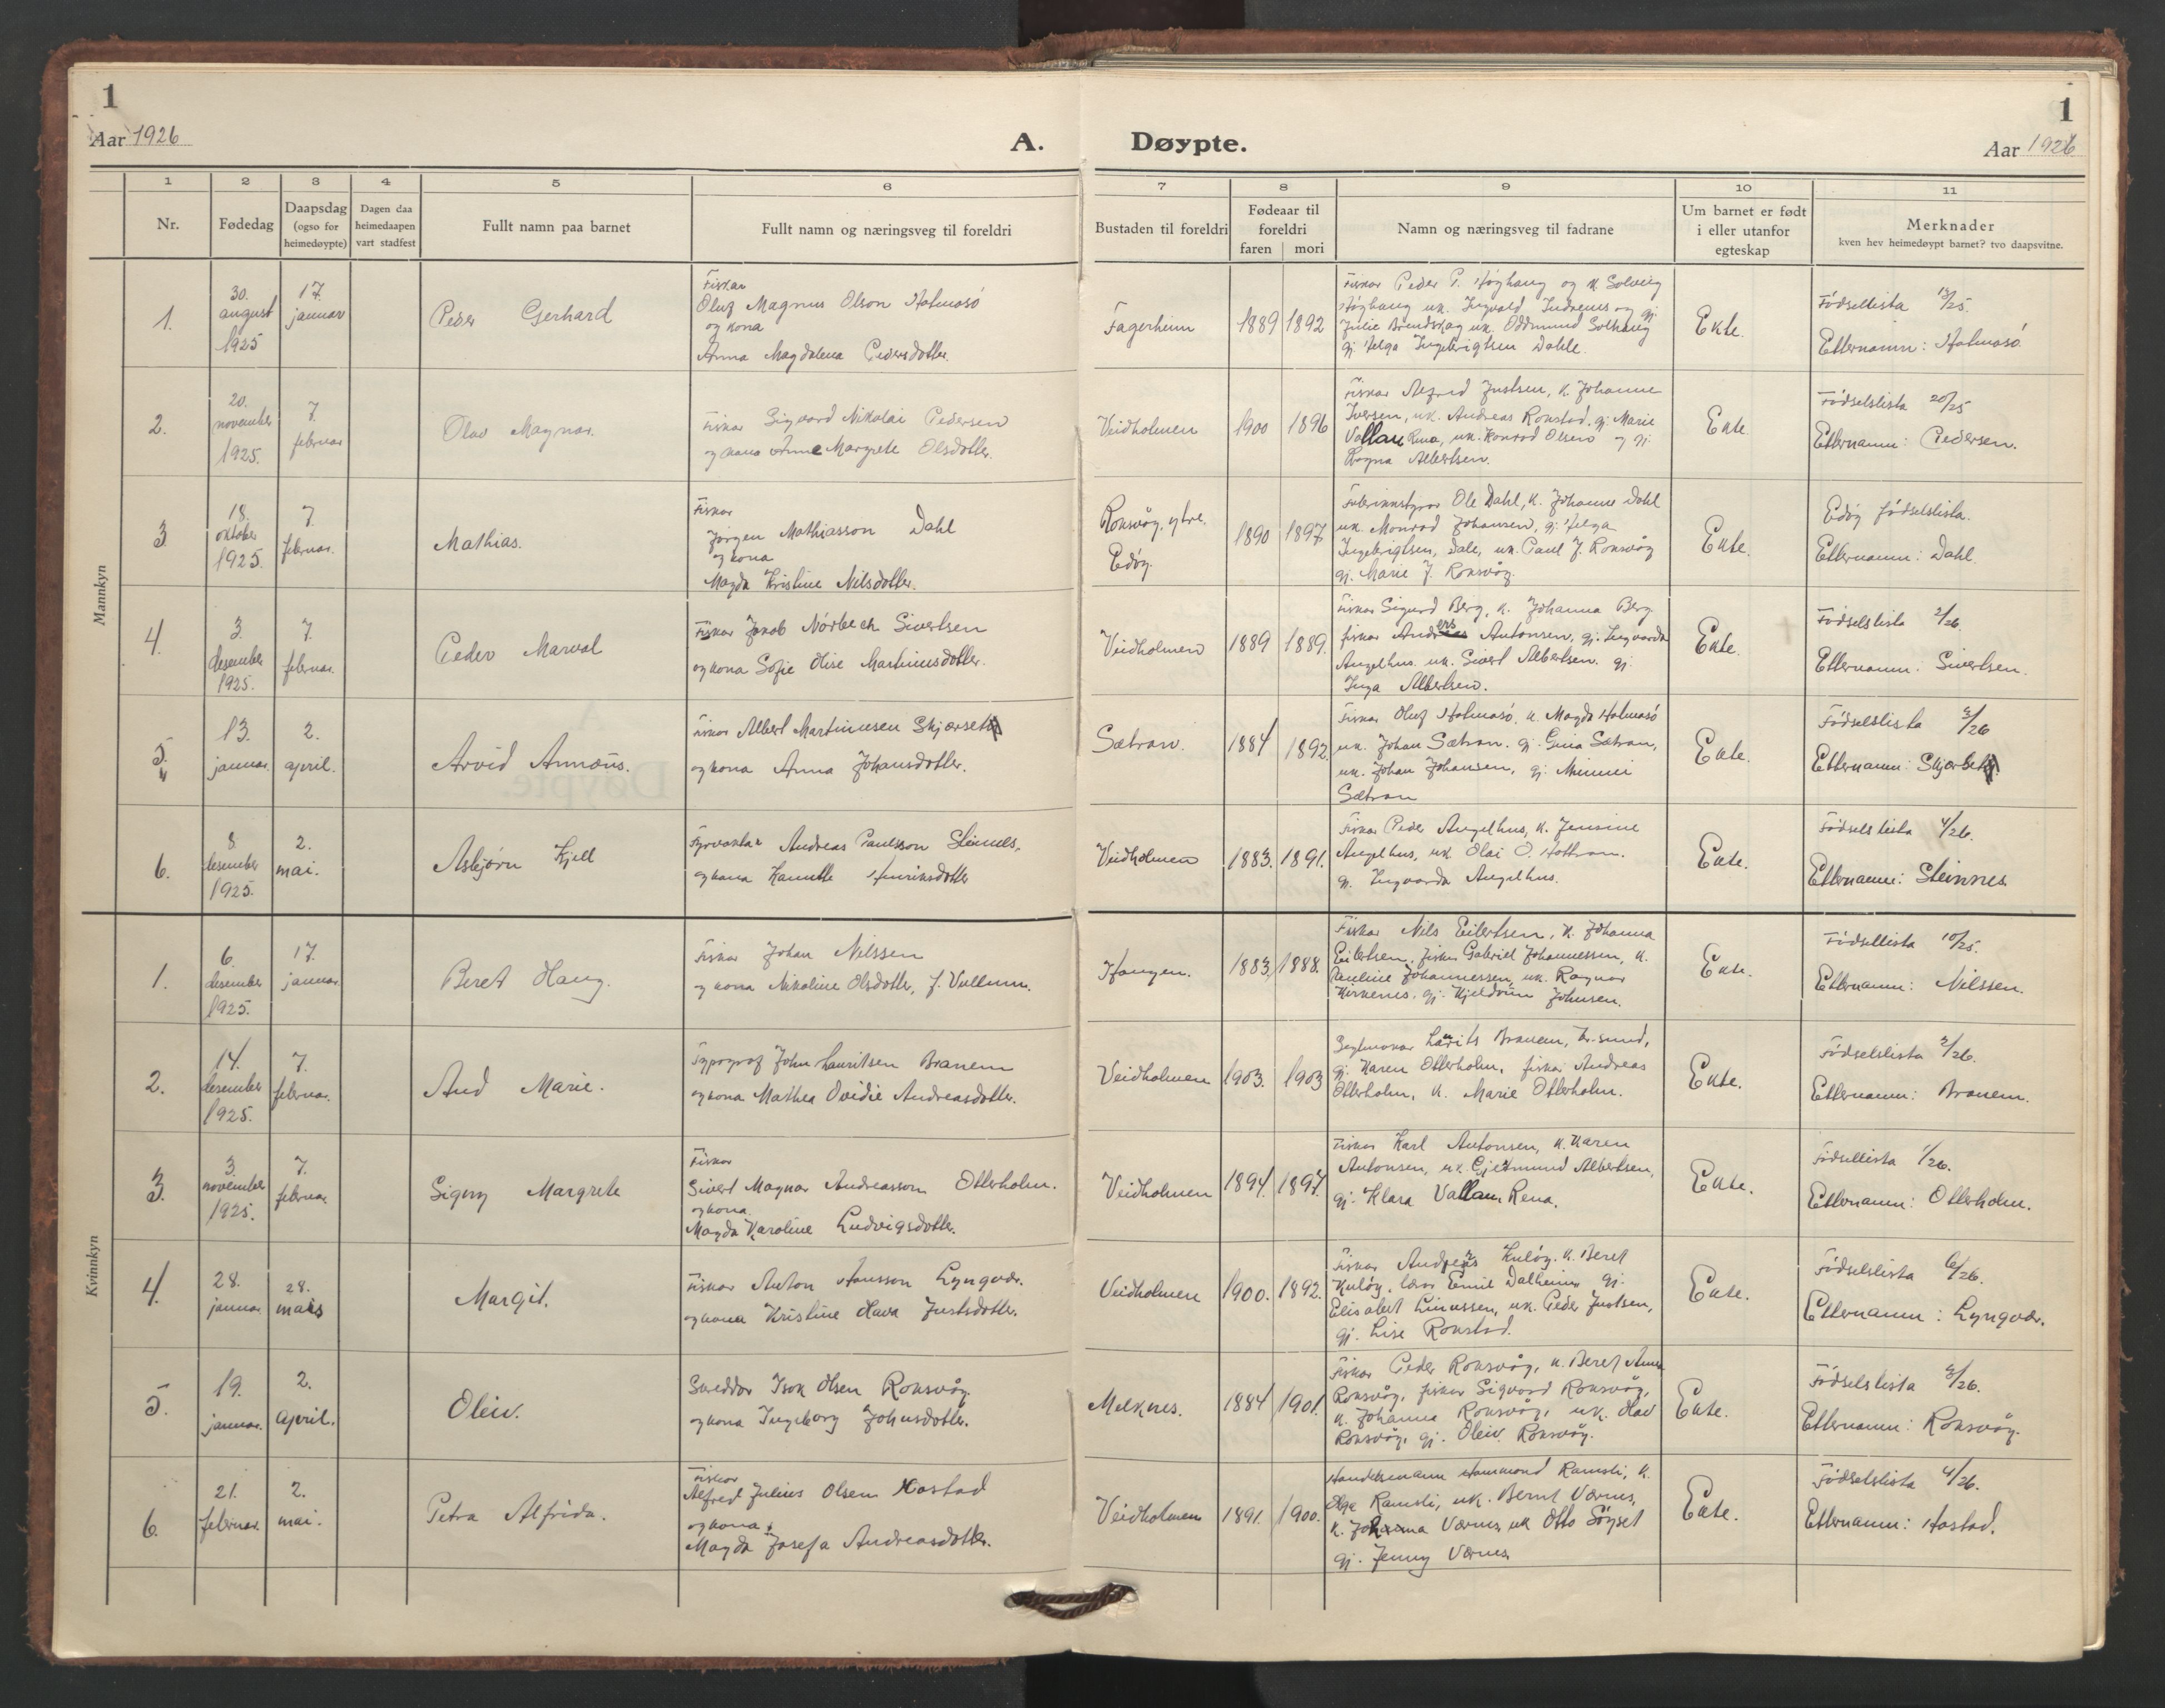 1
1
Aar 1926
A. Døypte.
Aar 1926
1 2 3 4 5 6 7 8 9 10 11
Nr.
Fødedag
Daapsdag
(ogso for
heimedøypte)
Dagen daa
heimedaapen
vart stadfest
Fullt namn paa barnet
Fullt namn og næringsveg til foreldri
Bustaden til foreldri
Fødeaar til
foreldri
faren mori
Namn og næringsveg til fadrane
Um barnet er født
i eller utanfor
egteskap
Merknader
kven hev heimedøypt barnet? tvo daapsvitne.
Mannkyn
1.
30.
august
1925
17.
januar
Peder Gerhard
Fiskar
Oluf Magnus Olson Holmasø
og kona
Anna Magdalena Pedersdotter.
Fagerheim
1889 1892
Fiskar Peder P. Høghaug og k. Solveig
Høghaug uk. Ingvald Indrenes og gj.
Julie Brendskag uk. Oddmund Solhaug
gj. Helga Ingebrigtsen Dahle.
Ekte.
Fødsellista 13/25.
Etternamn: Holmasø
2.
20.
november
1925.
7.
februar
Olav Magnar.
Fiskar Sigvard Nikolai Pedersen
og kona Anne Margrete Olsdotter.
Veidholmen
1900 1896
Fiskar Alfred Justsen, k. Johanne
Iversen, uk. Andreas Rokstad, gj. Marie
Vallau Rena, uk. Konrad Olsen og gj.
Ragna Albertsen.
Ekte
Fødselslista 20/25
Etternamn: Pedersen.
3.
18.
oktober
1925.
7.
februar.
Mathias.
Fiskar
Jørgen Mathiasson Dahl
og kona
Magda Kristine Nilsdotter.
Roksvåg, ytre.
Edøy.
1890 1897
Fabrikkstyrar Ole Dahl, k. Johanne Dahl
uk. Monrad Johansen, gj. Helga
Ingebrigtsen, Dale, uk. Paul J. Roksvåg
gj. Marie J. Roksvåg.
Ekte.
Edøy fødselslista.
Etternamn: Dahl
4.
3.
desember
1925.
7.
februar.
Peder Marval
Fiskar Jakob Nørbech Sivertsen
og kona Sofie Olise Martinusdotter.
Veidholmen
1889 1889.
Fiskar Sigurd Berg, k. Johanna Berg
fiskar Anders Antonsen, gj. Ingvarda
Angelhus. uk. Sivert Albertsen. gj.
Inga Albertsen.
Ekte.
Fødselslista 2/26.
Etternamn: Sivertsen.
5.
13.
januar.
2.
april.
Arvid Annæus.
Fiskar Albert Martinusen Skjærseth
og kona Anna Johansdotter.
Sætran.
1884 1892
Fiskar Oluf Holmasø, k. Magda Holmasø
uk. Johan Sætran. gj. Gina Sætran,
uk. Johan Johansen, gj. Minnei
Sætran
Ekte.
Fødselslista 3/26
Etternamn: Skjærseth.
6.
8.
desember
1925.
2.
mai.
Asbjørn Kjell
Fyrvaktar Andreas Paulsson Steinnes,
og kona Hanette Henriksdotter
Veidholmen
1883. 1891.
Fiskar Peder Angelhus, k. Jensine
Angelhus, uk. Olai O. Hottran.
gj. Ingvarda Angelhus.
Ekte.
Fødselslista 4/26.
Etternamn: Steinnes.
Kvinnkyn
1.
6.
desember
1925.
17.
januar.
Beret Haug.
Fiskar Johan Nilssen
og kona Nikoline Olsdotter, f. Vullum.
Haugen.
1883 1888.
Fiskar Nils Eilertsen, k. Johanna
Eilertsen, fiskar Gabriel Johannessen, k.
Pauline Johannessen, uk. Ragnar
Kirkenes, gj. Kjeldrun Johnsen.
Ekte.
Fødsellista 10/25.
Etternamn: Nilssen.
2.
14.
desember
1925.
7.
februar.
Aud Marie.
Typograf John Lauritsen Branem
og kona Mathea Ovidie Andreasdotter.
Veidholmen
1903. 1903
Seglmakar Laurits Branem, Kr.sund,
gj. Karen Otterholm, fiskar Andreas
Otterholm, k. Marie Otterholm.
Ekte.
Fødselslista 3/26.
Etternamn: Branem.
3.
3.
november
1925.
7.
februar
Signy Margrete
Fiskar
Sivert Magnar Andreasson Otterholm.
og kona
Magda Karoline Ludvigsdotter.
Veidholmen
1894. 1897.
Fiskar Karl Antonsen, k. Karen
Antonsen, uk. Gjermund Albertsen,
gj. Klara Vallau Rena.
Ekte.
Fødsellista 1/26.
Etternamn: Otterholm.
4.
28.
januar.
28.
mars
Margit.
Fiskar Anton Hansson Lyngvær.
og kona Kristine Hava Justsdotter.
Veidholmen
1900. 1892.
Fiskar Andreas Kuløy. k. Beret
Kuløy, lærar Emil Dalheim gj.
Elisabet Linussen, uk. Peder Justsen,
gj. Lise Rokstad.
Ekte.
Fødselslista 6/26.
Etternamn: Lyngvær.
5.
19.
januar.
2.
april.
Oleiv.
Skreddar Isak Olsen Roksvåg.
og kona Ingeborg Johnsdotter.
Melknes.
1884 1901.
Fiskar Peder Roksvåg, k. Beret Anna
Roksvåg, fiskar Sigvard Roksvåg,
k. Johanna Roksvåg, uk. Olav
Roksvåg, gj. Oleiv Roksvåg.
Ekte.
Fødselslista 3/26.
Etternamn: Roksvåg.
6.
21.
februar.
2.
mai.
Petra Alfrida.
Fiskar
Alfred Julius Olsen Hostad
og kona
Magda Josefa Andreasdotter.
Veidholmen
1891. 1900.
Handelsmann Hammond Ramsli, k.
Olga Ramsli, uk. Bernt Værnes,
k. Johanna Værnes, uk Otto Søyset
gj. Jenny Værnes.
Ekte.
Fødselslista 4/26.
Etternamn: Hostad.